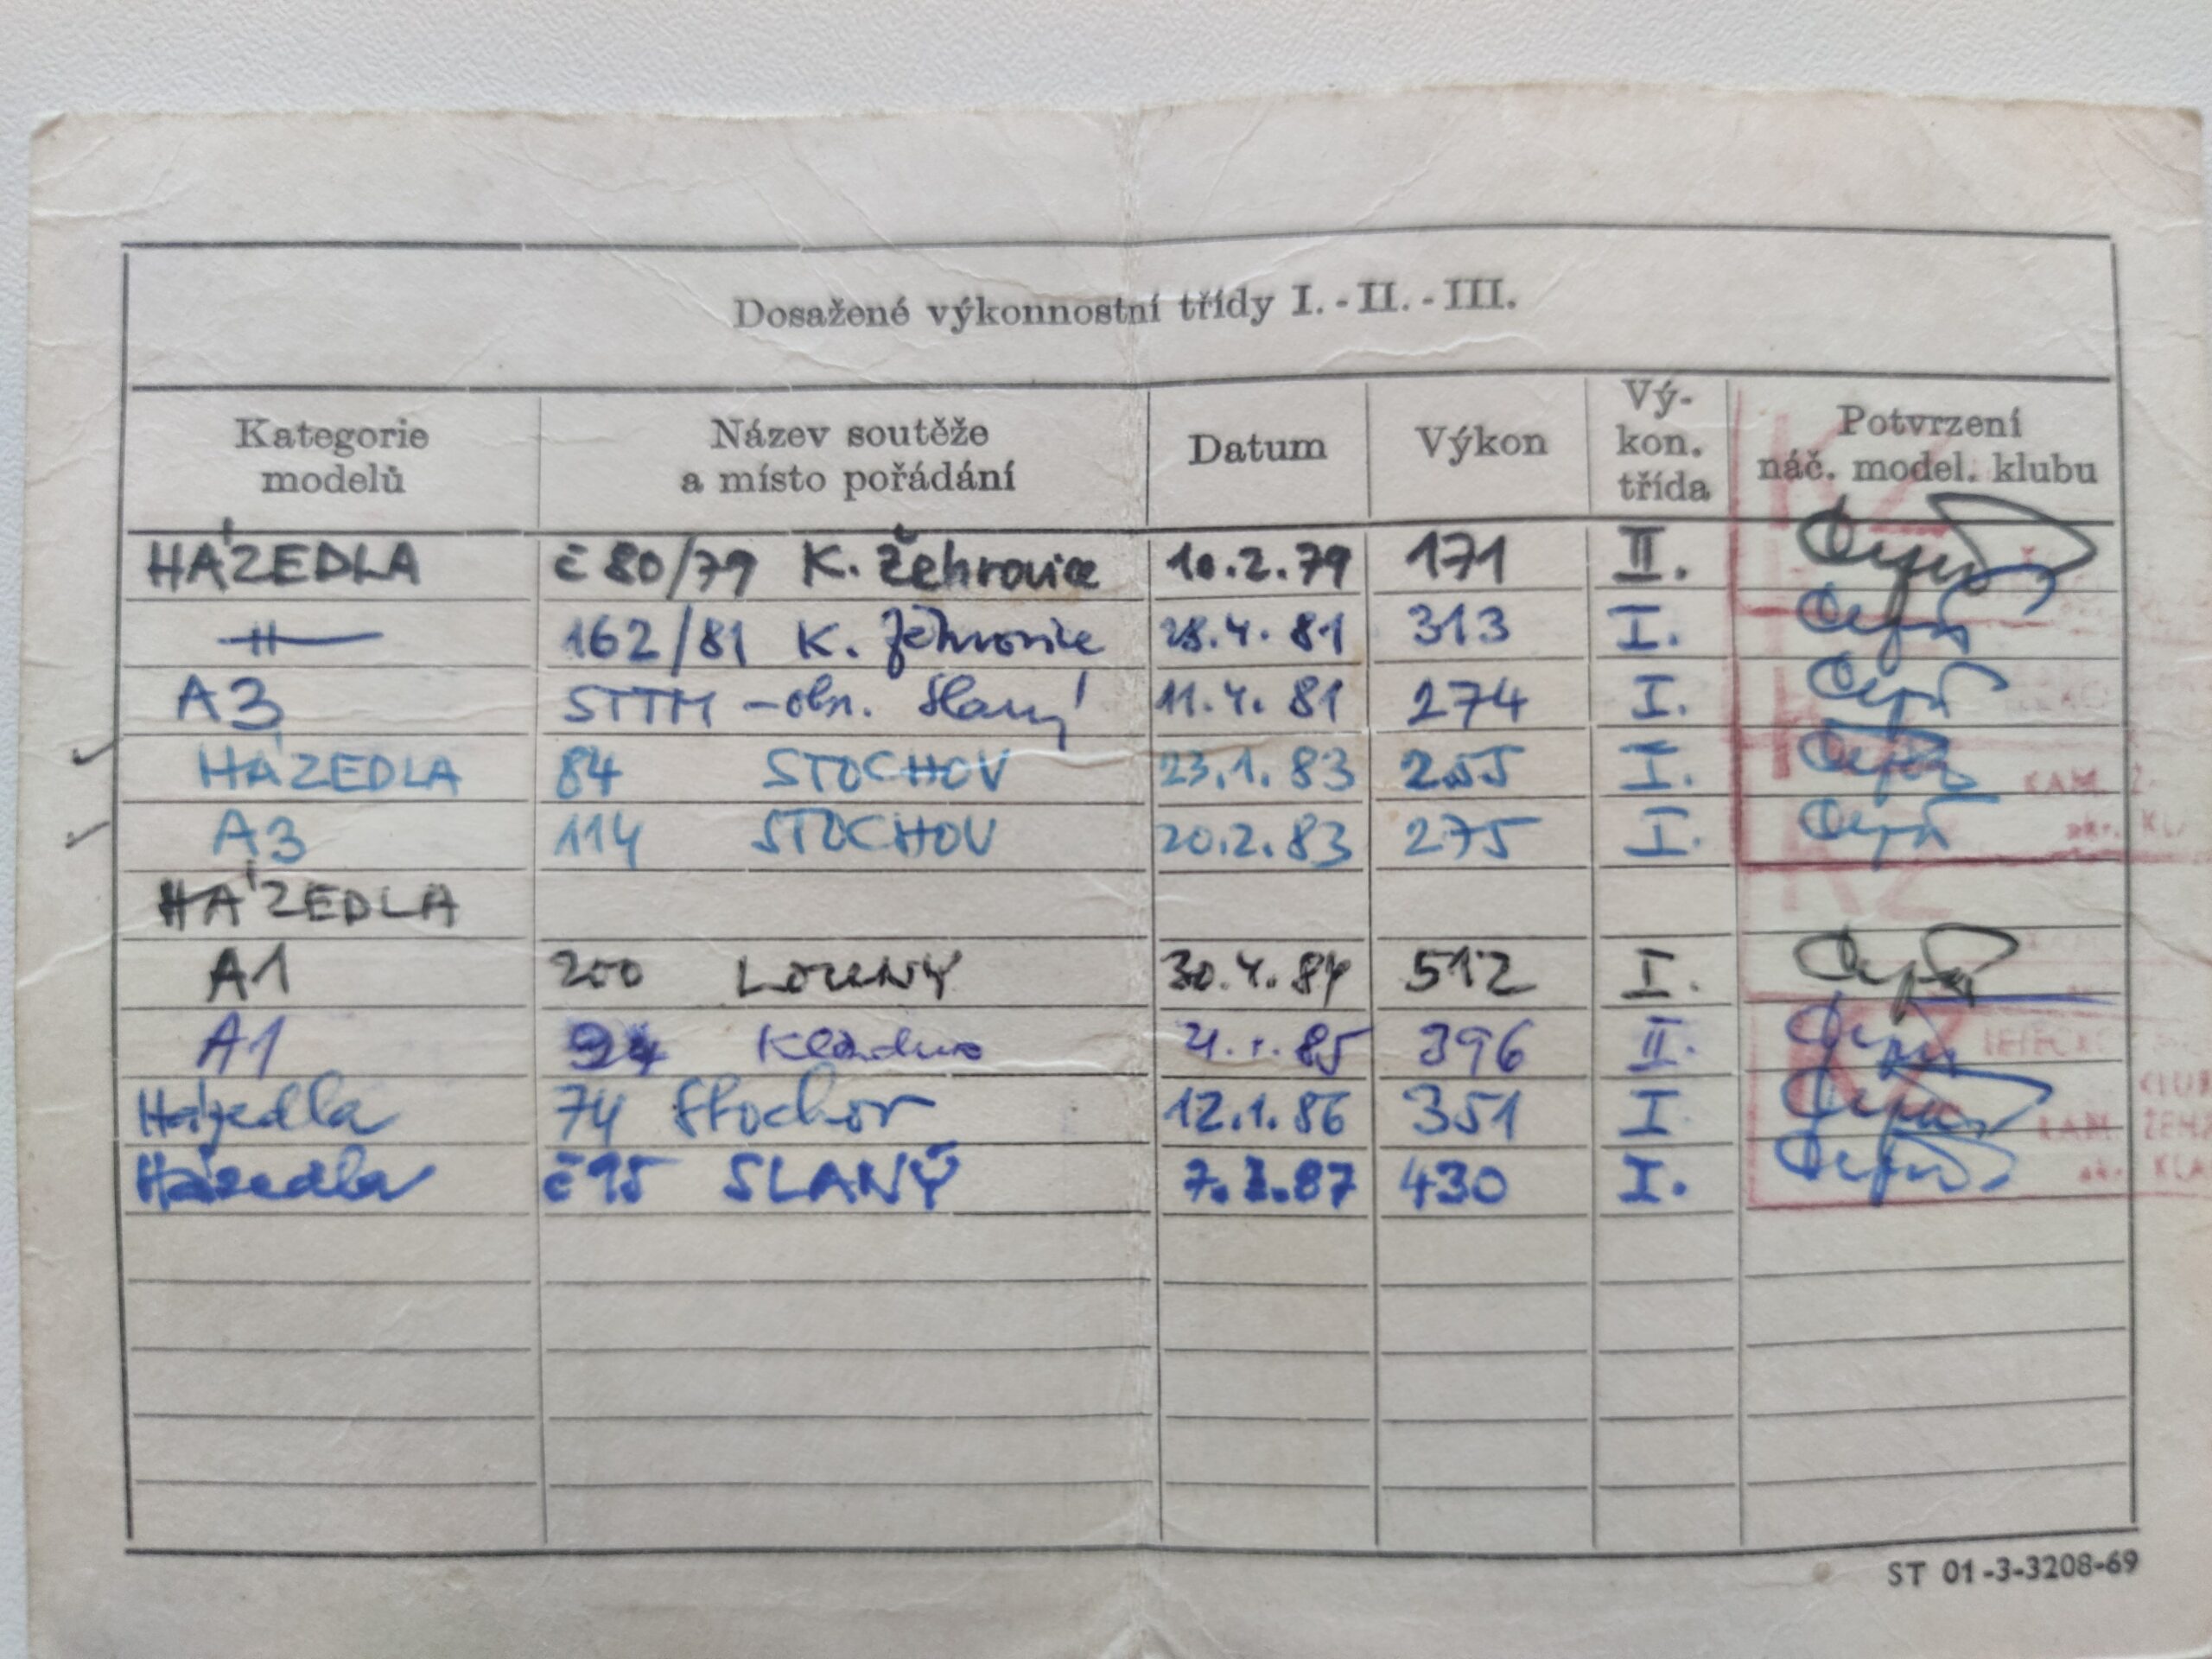 Dosažené výkonnostní třídy I. - II. - III.
Kategorie modelů Název soutěže a místo pořádání Datum Výkon Vý-kon. třída Potvrzení náč. model. klubu
HÁZEDLA č 80/79 K. Žehrovice 10.2.79 171 II.
-"- 162/81 K. Žehrovice 28.4.81 313 I.
A3 STTM - obn. Slaný 11.4.81 274 I.
HÁZEDLA 84 STOCHOV 23.1.83 255 I.
A3 114 STOCHOV 20.2.83 275 I.
HÁZEDLA
A1 200 LOUNY 30.4.84 512 I.
A1 94 Kladno 85 396 II.
Házedla 74 Stochov 12.1.86 351 I
Házedla č 95 SLANÝ 87 430 I.
KAM. Ž
okr. KLA
KLUB
KAM. ŽEHR
okr. KLA
ST 01-3-3208-69